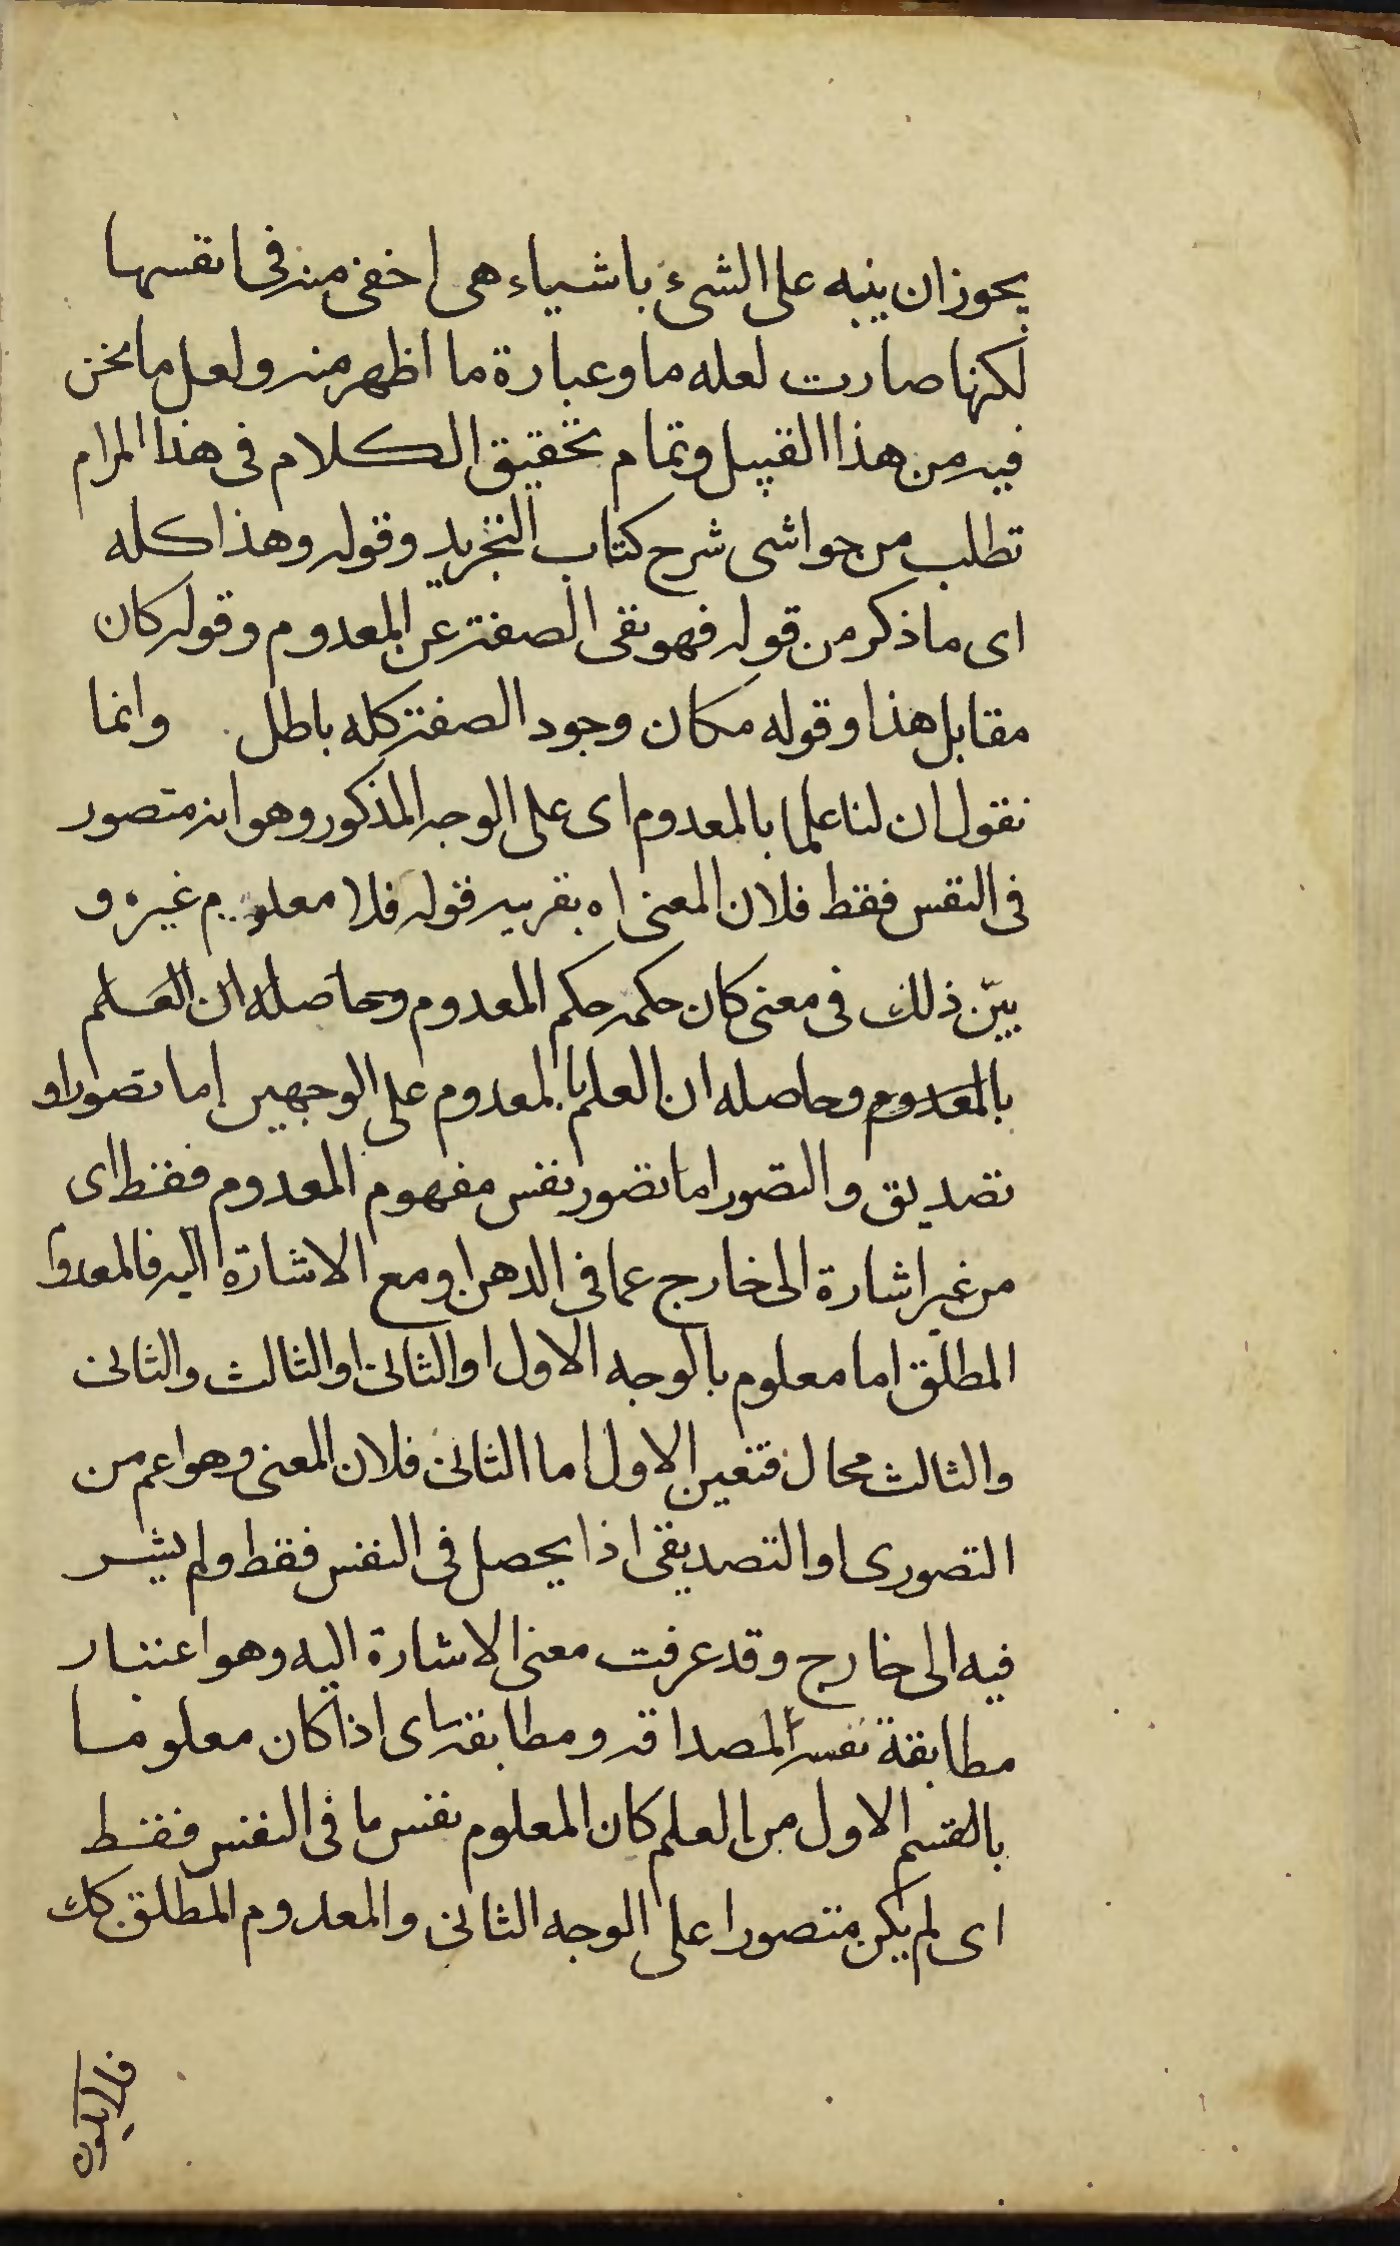 يجوز ان ينبه على الشىء باشياء هى اخفى منه فى انفسها
لكنها صارت لعله ما وعبارة ما اظهر منه ولعل ما نحن
فيه من هذا القبيل وتمام تحقيق الكلام فى هذا المرام
تطلب من حواشى شرح كتاب التجريد وقوله وهذا كله
اى ما ذكر من قوله فهو نفى الصفة عن المعدوم وقوله كان
مقابل هذا وقوله مكان وجود الصفة كله باطل وانما
نقول ان لنا علما بالمعدوم اى على الوجه المذكور وهو انه متصور
فى النفس فقط فلان المعنى اه بقرينه قوله فلا معلوم غيره و
بيّن ذلك فى معنى كان حكمه حكم المعدوم وحاصله ان العلم
بالمعدوم وحاصله ان العلم بالمعدوم على الوجهين إما تصور او
تصديق والتصور اما تصور نفس مفهوم المعدوم فقط اى
من غير اشارة الى خارج عما فى الذهن او مع الاشارة اليه فالمعدوم
المطلق اما معلوم بالوجه الاول او الثانى او الثالث والثانى
والثالث محال فتعين الاول اما الثانى فلان المعنى وهو اعم من
التصورى او التصديقى اذا يحصل فى النفس فقط ولم يشر
فيه الى خارج وقد عرفت معنى الاشارة اليه وهو اعتبار
مطابقة نفسه لمصداقه ومطابقته اى اذا كان معلوما
بالقسم الاول من العلم كان المعلوم نفس ما فى النفس فقط
اى لم يكن متصورا على الوجه الثانى والمعدوم المطلق كك
فلا يكون